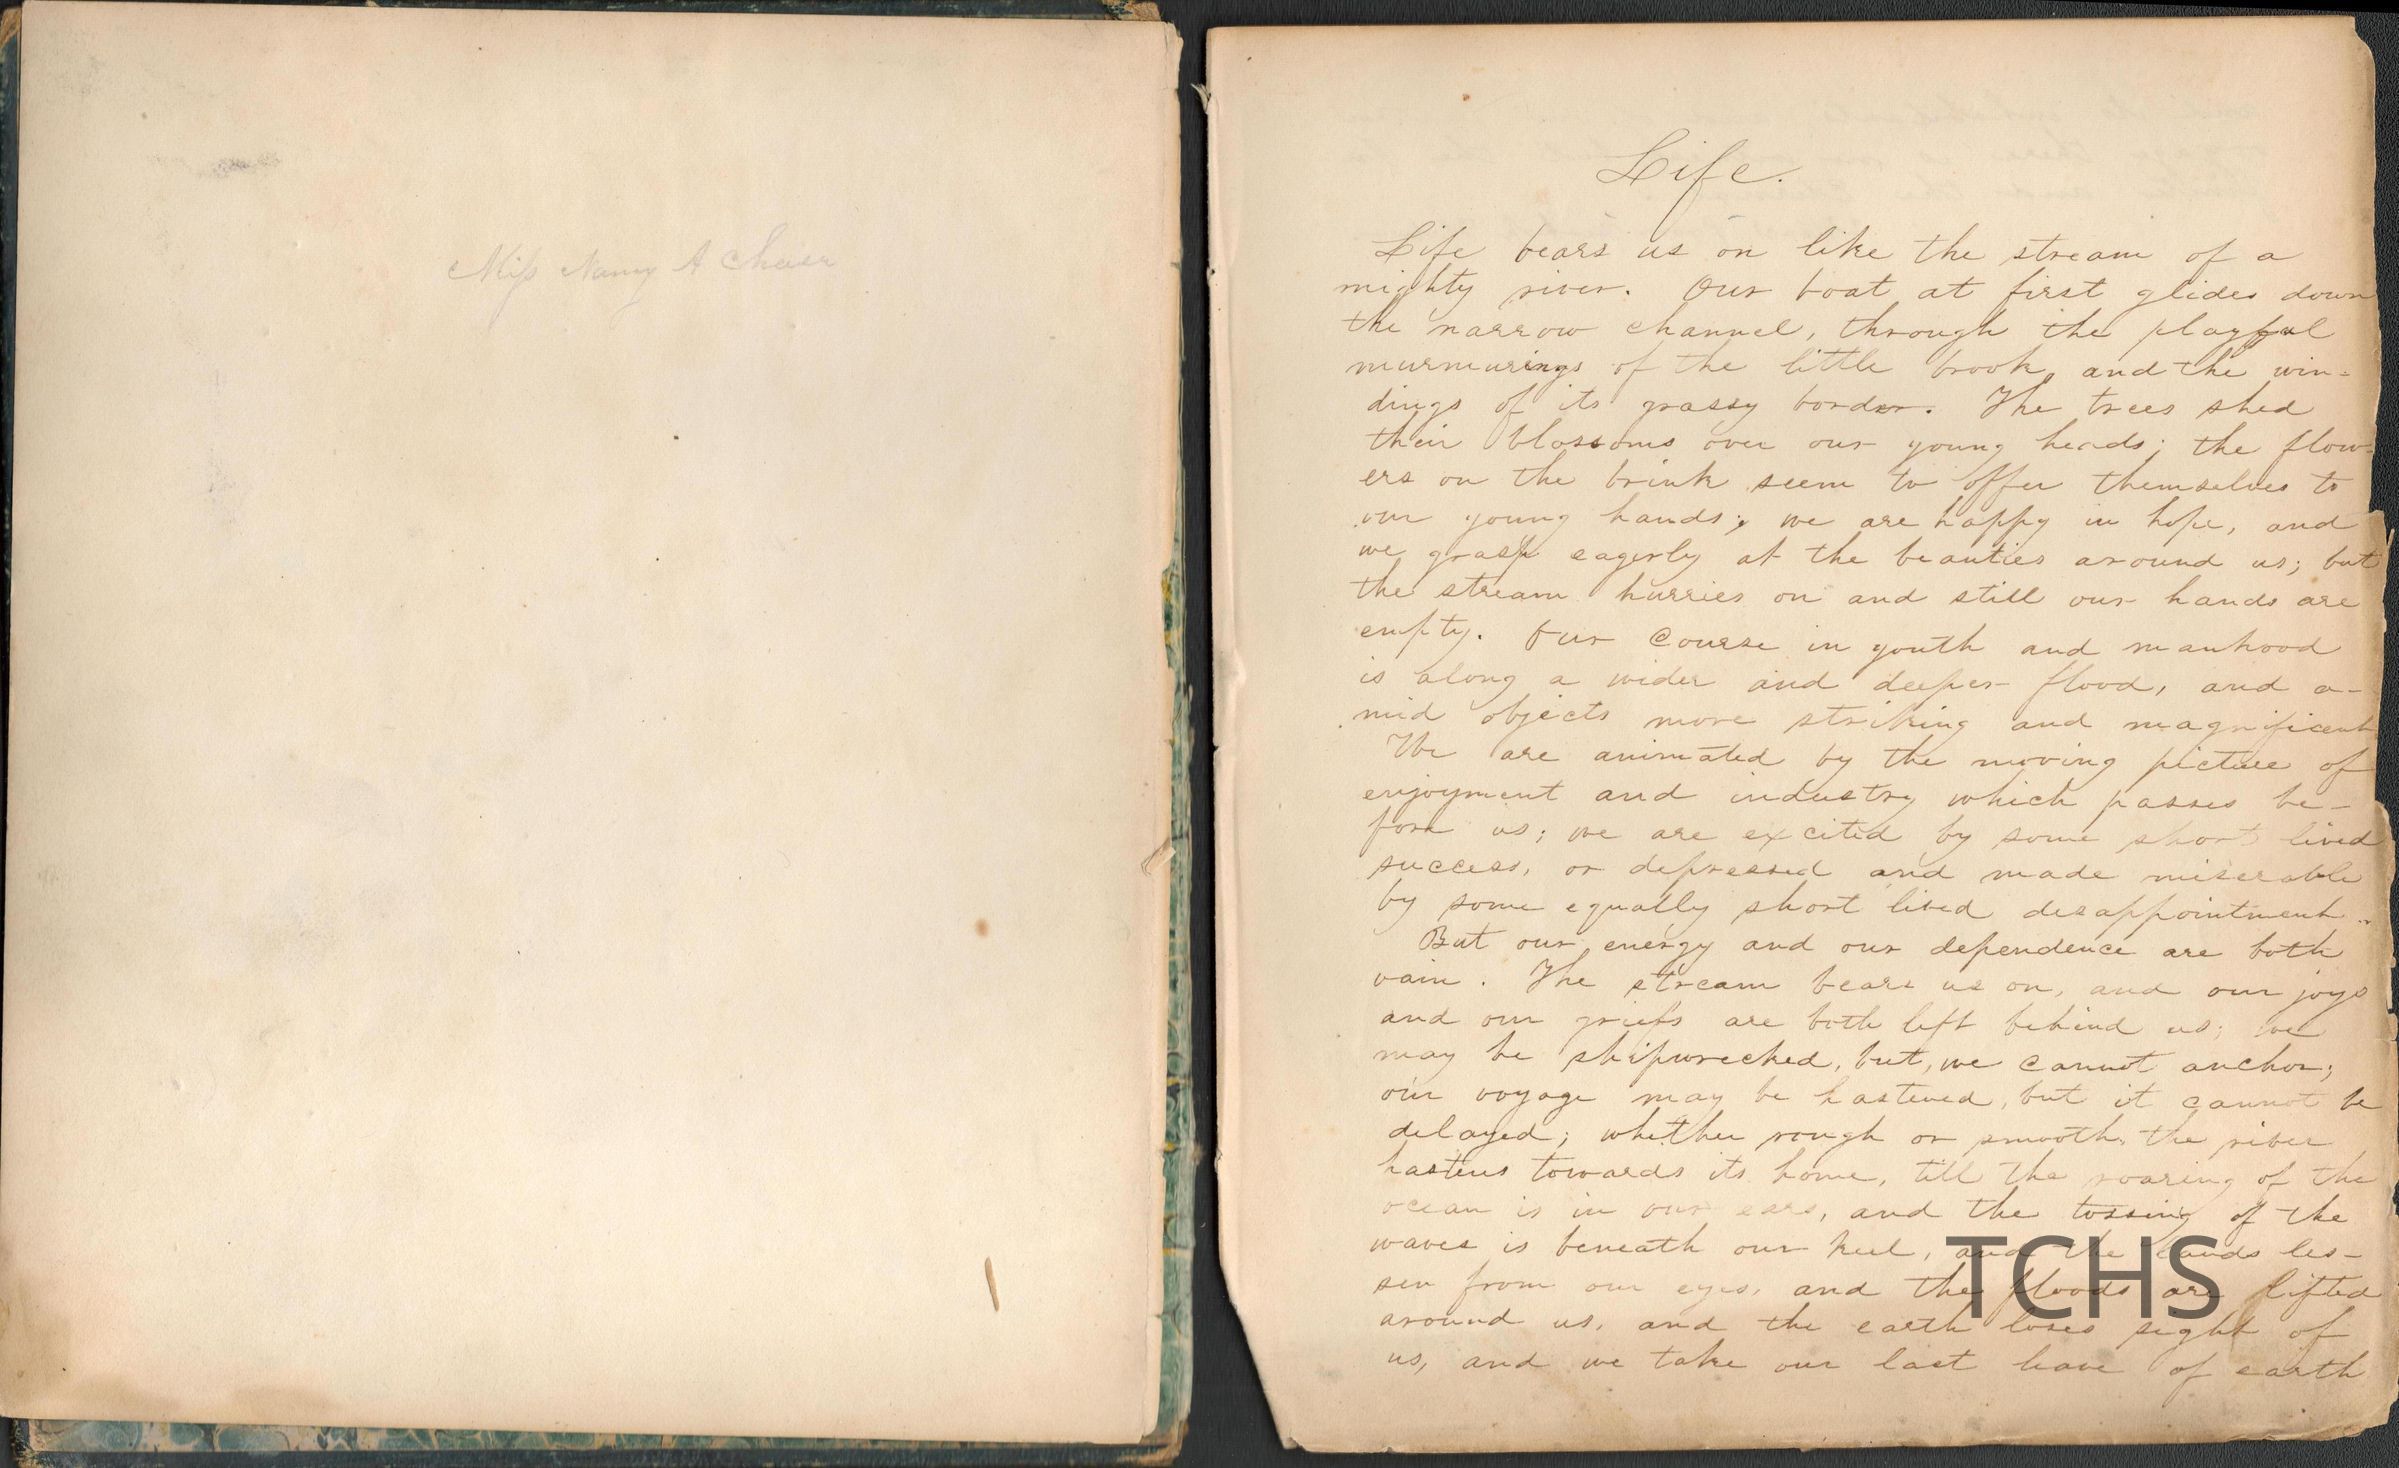 Miss Nancy A Chase
Life.
Life bears us on like the stream of a
mighty river. Our boat at first glides down
the narrow channel, through the playful
murmurings of the little brook and the win-
dings of its grassy border. The trees shed
their blossoms over our young heads; the flow-
ers on the brink seem to offer themselves to
our young hands; we are happy in hope, and
we grasp eagerly at the beauties around us; but
the stream hurries on and still our hands are
empty. Our course in youth and manhood
is along a wider and deeper flood, and a-
mid objects more striking and magnificent
We are animated by the moving picture of
enjoyment and industry which passes be-
fore us; we are excited by some short lived
success, or depressed and made miserable
by some equally short lived desappointment.
But our energy and our dependence are both
vain. The stream bears us on, and our joys
and our griefs are both left behind us; we
may be shipwrecked, but, we cannot anchor;
our voyage may be hastened, but it cannot be
delayed; whether rough or smooth, the river
hastens towards its home, till the roaring of the
ocean is in our ears, and the tossing of the
waves is beneath our keel, and the lands les-
sen from our eyes, and the floods are lifted
around us, and the earth loses sight of
us, and we take our last leave of earth
TCHS